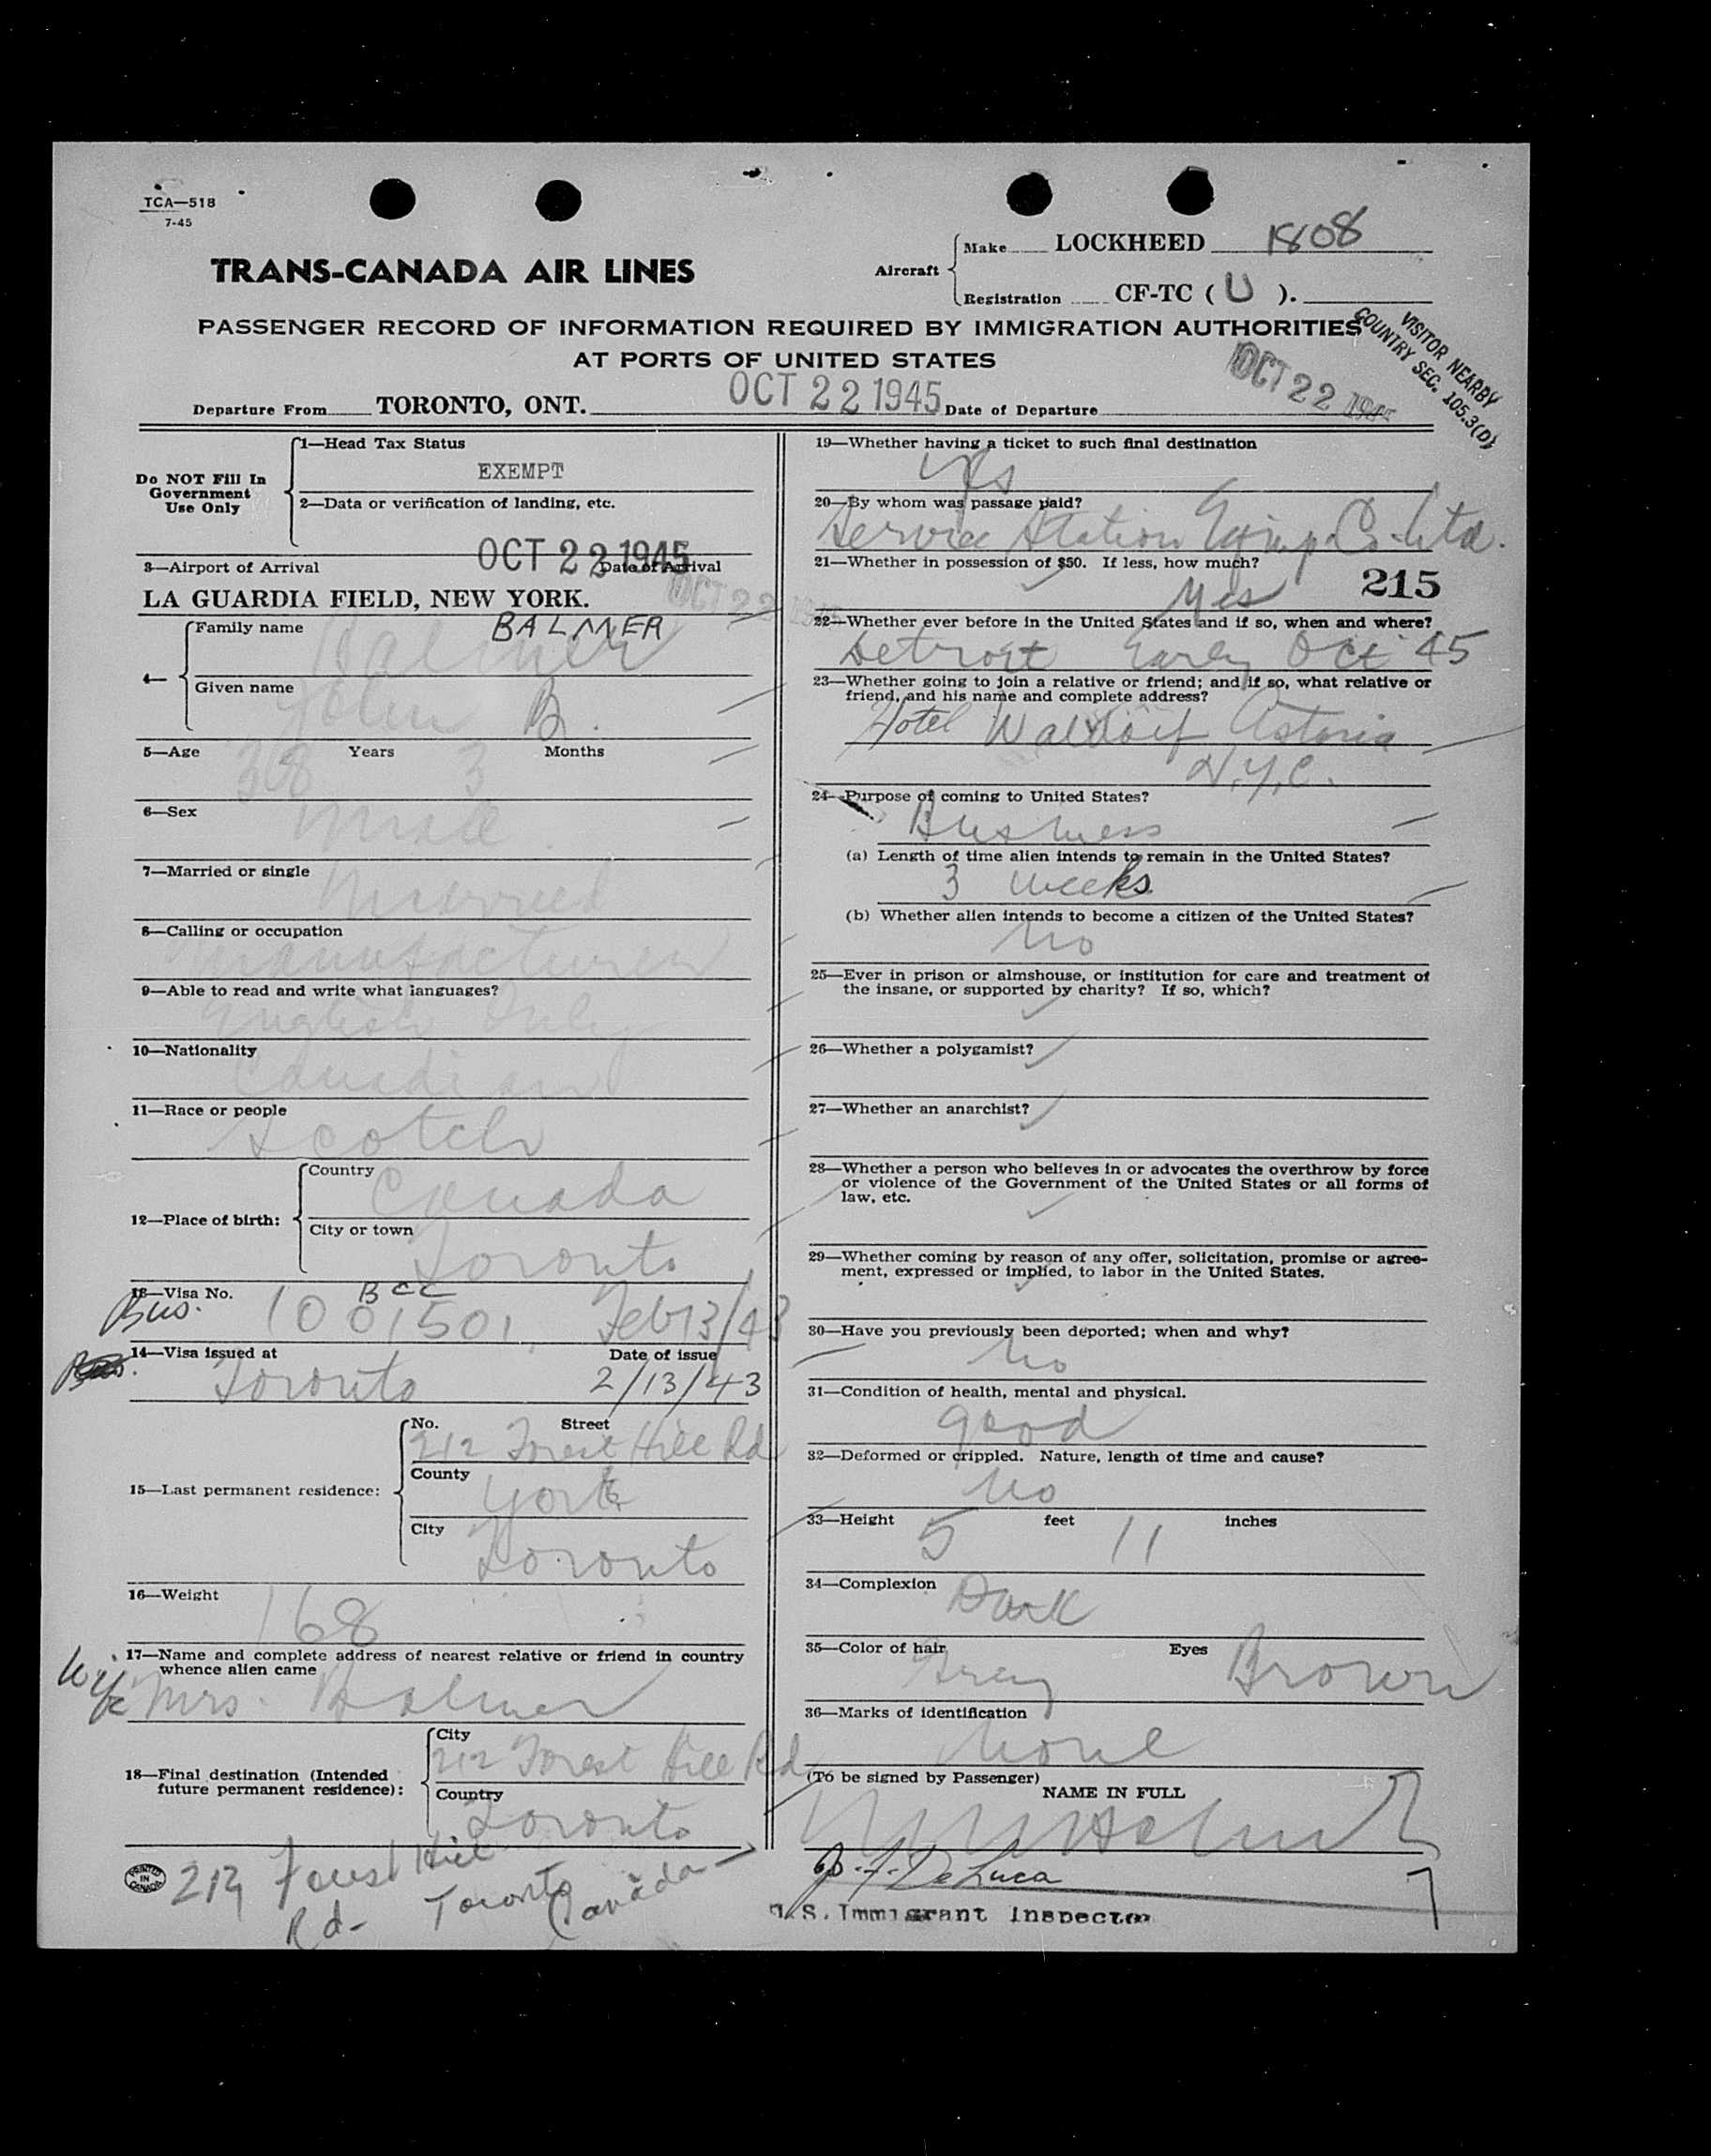 TCA—518
7-45
TRANS-CANADA AIR LINES
Aircraft
Make LOCKHEED 1808
Registration CF-TC ( U ).
PASSENGER RECORD OF INFORMATION REQUIRED BY IMMIGRATION AUTHORITIES
AT PORTS OF UNITED STATES
VISITOR NEARBY
COUNTRY SEC. 105.3(D)
Departure From TORONTO, ONT. OCT 22 1945 Date of Departure OCT 22 1945
Do NOT Fill In
Government
Use Only
1—Head Tax Status
EXEMPT
2—Data or verification of landing, etc.
3—Airport of Arrival OCT 22 1945 Date of Arrival
LA GUARDIA FIELD, NEW YORK. OCT 22 1945
4—
Family name BALMER
Balmer
Given name
John B.
5—Age 38 Years 3 Months
6—Sex
Male
7—Married or single
Married
8—Calling or occupation
Manufacturer
9—Able to read and write what languages?
English Only
10—Nationality
Canadian
11—Race or people
Scotch
12—Place of birth:
Country
Canada
City or town
Toronto
13—Visa No. BCC
Bus. 1001501 Feb 13/43
14—Visa issued at Date of issue
Toronto 2/13/43
15—Last permanent residence:
No. Street
212 Forest Hill Rd
County
York
City
Toronto
16—Weight
168
17—Name and complete address of nearest relative or friend in country
whence alien came
Wife Mrs. Balmer
18—Final destination (Intended
future permanent residence):
City
212 Forest Hill Rd
Country
Toronto
PRINTED
IN
CANADA
212 Forest Hill
Rd- Toronto
Canada
19—Whether having a ticket to such final destination
Yes
20—By whom was passage paid?
Service Station Equip. Co. Ltd.
21—Whether in possession of $50. If less, how much?
Yes 215
22—Whether ever before in the United States and if so, when and where?
Detroit Early Oct 45
23—Whether going to join a relative or friend; and if so, what relative or
friend, and his name and complete address?
Hotel Waldorf Astoria
N.Y.C.
24—Purpose of coming to United States?
Business
(a) Length of time alien intends to remain in the United States?
3 weeks
(b) Whether alien intends to become a citizen of the United States?
No
25—Ever in prison or almshouse, or institution for care and treatment of
the insane, or supported by charity? If so, which?
26—Whether a polygamist?
27—Whether an anarchist?
28—Whether a person who believes in or advocates the overthrow by force
or violence of the Government of the United States or all forms of
law, etc.
29—Whether coming by reason of any offer, solicitation, promise or agree-
ment, expressed or implied, to labor in the United States.
30—Have you previously been deported; when and why?
No
31—Condition of health, mental and physical.
good
32—Deformed or crippled. Nature, length of time and cause?
No
33—Height 5 feet 11 inches
34—Complexion Dark
35—Color of hair Grey Eyes Brown
36—Marks of identification
None
(To be signed by Passenger)
NAME IN FULL
DeLuca
U.S. Immigrant Inspector